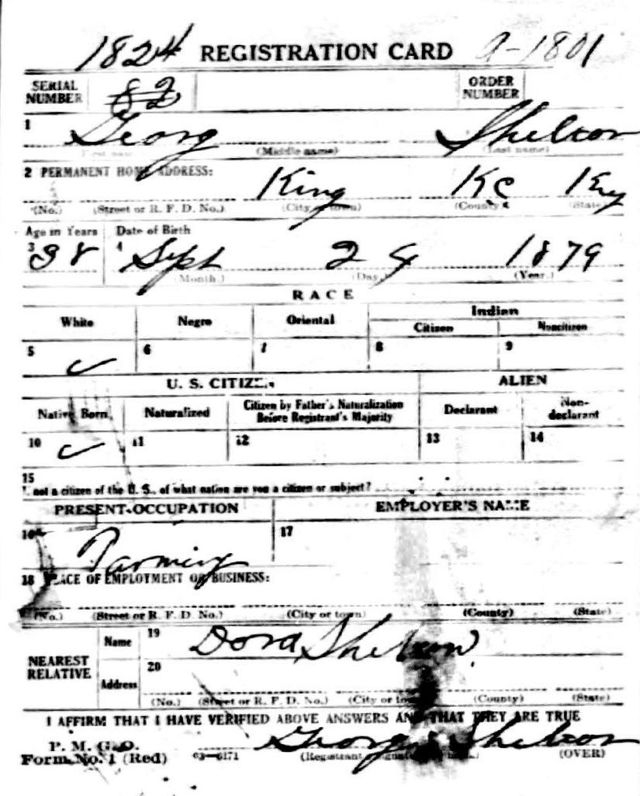 1824 REGISTRATION CARD a-1801
SERIAL NUMBER 82 ORDER NUMBER
1 Georg Shelton
(Middle name) (Last name)
2 PERMANENT HOME ADDRESS: King Ky
(No.) (Street or R. F. D. No.) (City or town) (County) (State)
Age in Years Date of Birth
3 38 4 Sept 24 1879
(Month.) (Day.) (Year.)
RACE
White Negro Oriental Indian
Citizen Noncitizen
5 6 7 8 9
U. S. CITIZEN ALIEN
Native Born Naturalized Citizen by Father's Naturalization Before Registrant's Majority Declarant Non-declarant
10 11 12 13 14
15
not a citizen of the U. S., of what nation are you a citizen or subject?
PRESENT OCCUPATION EMPLOYER'S NAME
16 Farming 17
18 PLACE OF EMPLOYMENT OR BUSINESS:
(No.) (Street or R. F. D. No.) (City or town) (County) (State)
NEAREST RELATIVE Name 19 Dora Shelton
Address 20
(No.) (Street or R. F. D. No.) (City or town) (County) (State)
I AFFIRM THAT I HAVE VERIFIED ABOVE ANSWERS AND THAT THEY ARE TRUE
P. M. G. O.
Form No. 1 (Red) 03-6171 Georg Shelton (OVER)